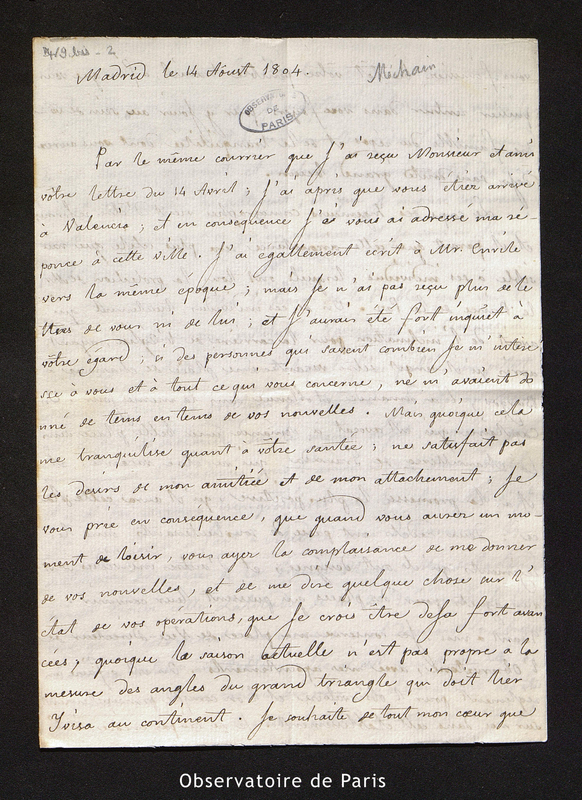 B4/9.bis - 2
Madrid le 14 Aoust 1804.
Mechain
OBSERVATOIRE
DE
PARIS
Par le même courrier que J'ai reçu Monsieur et ami
vôtre lettre du 14 Avril; J'ai apris que vous étiez arrivé
à Valencia; et en conséquence Je vous ai adressé ma ré-
ponce à cette ville. J'ai egallement ecrit à Mr. Enrile
vers la même époque; mais Je n'ai pas reçu plus de le
ttres de vous ni de lui; et J'aurais été fort inquiet à
vôtre égard; si des personnes que savent combien Je m'intere
sse à vous et à tout ce qui vous concerne, ne m'avaient do
nné de tems en tems de vos nouvelles. Mais quoique cela
me tranquilise quant à vôtre santée; ne satisfait pas
les désirs de mon amitiée et de mon attachement; Je
vous prie en conséquence, que quand vous aurez un mo-
ment de loisir, vous ayez la complaisance de me donner
de vos nouvelles, et de me dire quelque chose sur l'
état de vos opérations, que Je crois être deja fort avan
cées; quoique la saison actuelle n'est pas propre à la
mesure des angles du grand triangle qui doit lier
Yvisa au continent. Je souhaite de tout mon cœur que
Observatoire de Paris